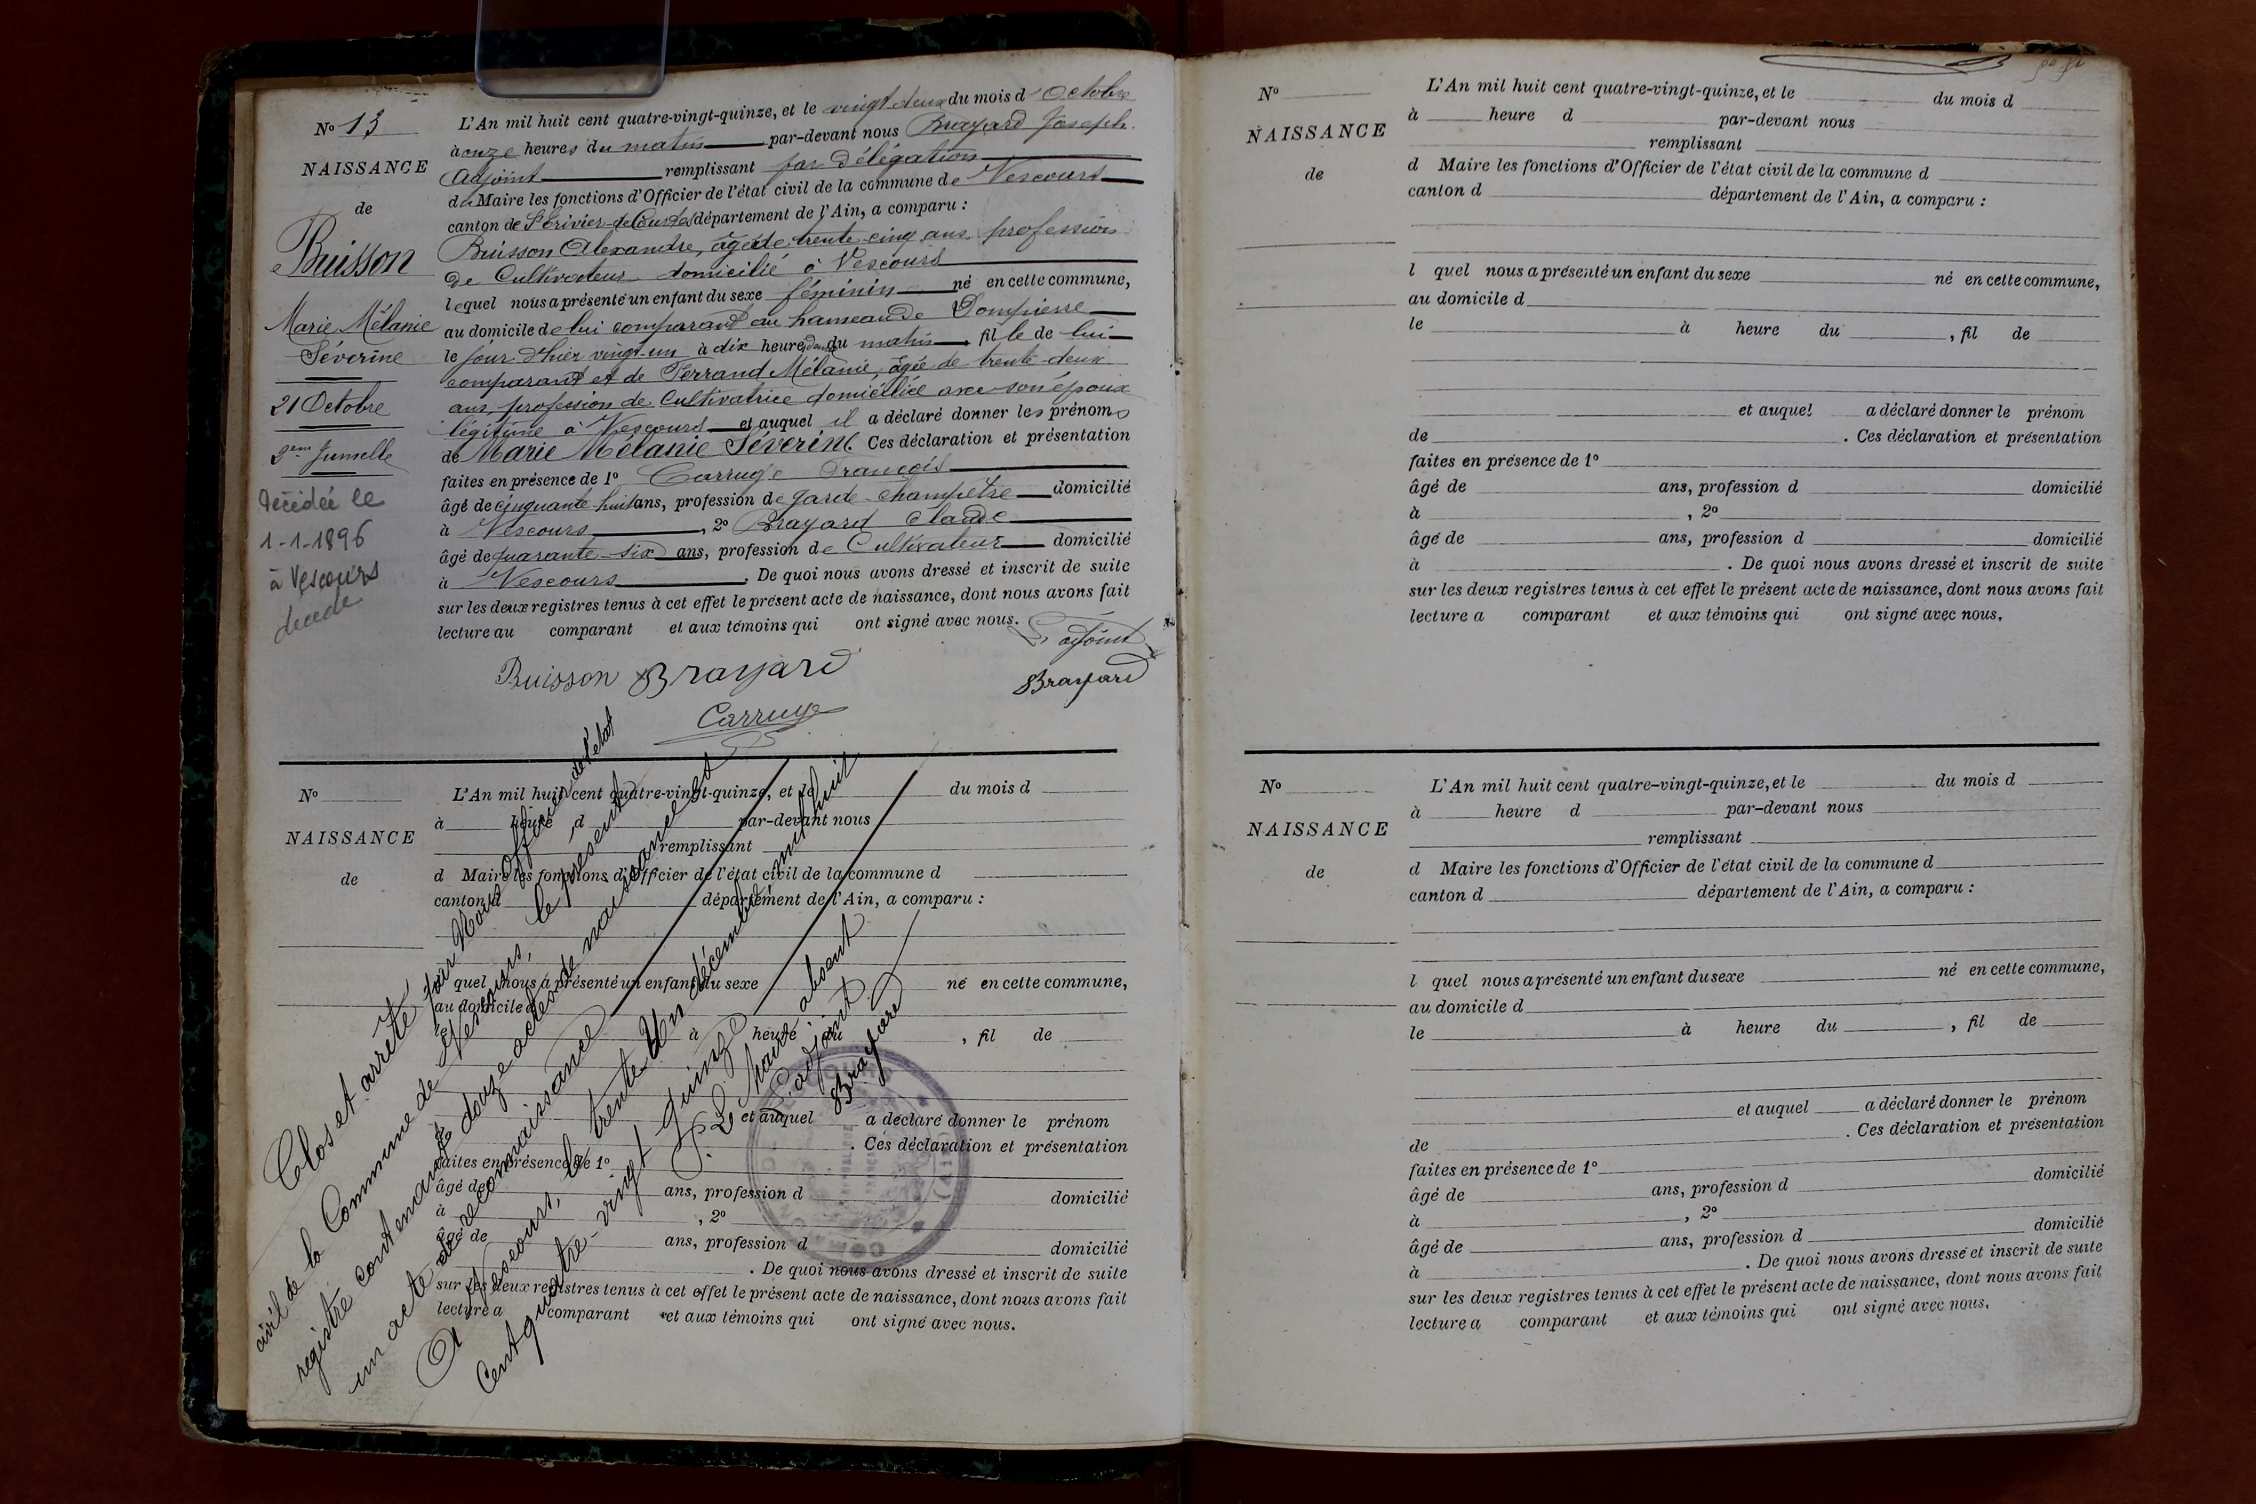 No 13
NAISSANCE
de
Buisson
Marie Mélanie
Séverine
21 Octobre
2eme Jumelle
Décédée le
1-1-1896
à Vescours
decede
L'An mil huit cent quatre-vingt-quinze, et le vingt deux du mois d' Octobre
à onze heures du matin par-devant nous Brayard Joseph
Adjoint remplissant par délégation
du Maire les fonctions d'Officier de l'état civil de la commune de Vescours
canton de St Trivier-de-Courtes département de l'Ain, a comparu :
Buisson Alexandre, âgé de trente cinq ans profession
de Cultivateur domicilié à Vescours
lequel nous a présenté un enfant du sexe féminin né en cette commune,
au domicile de lui comparant au hameau de Dompierre
le jour d'hier vingt-un à dix heures du matin, fille de lui
comparant et de Ferrand Mélanie, âgée de trente-deux
ans, profession de Cultivatrice domiciliée avec son époux
légitime à Vescours et auquel il a déclaré donner les prénoms
de Marie Mélanie Séverine. Ces déclaration et présentation
faites en présence de 1º Carruge François
âgé de cinquante huit ans, profession de garde-champêtre domicilié
à Vescours, 2º Brayard Claude
âgé de quarante-six ans, profession de Cultivateur domicilié
à Vescours. De quoi nous avons dressé et inscrit de suite
sur les deux registres tenus à cet effet le présent acte de naissance, dont nous avons fait
lecture au comparant et aux témoins qui ont signé avec nous.
L'adjoint
Buisson Brayard Brayard
Carruge
No
NAISSANCE
de
L'An mil huit cent quatre-vingt-quinze, et le du mois d
à heure d par-devant nous
remplissant
d Maire les fonctions d'Officier de l'état civil de la commune d
canton d département de l'Ain, a comparu :
l quel nous a présenté un enfant du sexe né en cette commune,
au domicile d
le à heure du , fil de
et auquel a déclaré donner le prénom
de . Ces déclaration et présentation
faites en présence de 1º
âgé de ans, profession d domicilié
à , 2º
âgé de ans, profession d domicilié
à . De quoi nous avons dressé et inscrit de suite
sur les deux registres tenus à cet effet le présent acte de naissance, dont nous avons fait
lecture a comparant et aux témoins qui ont signé avec nous.
Clos et arrêté par Nous Officier de l'état
civil de la Commune de Vescours, le présent
registre contenant douze actes de naissance et
un acte de reconnaissance
A Vescours, le trente Un décembre mil huit
Cent quatre-vingt quinze
P. Le Maire absent
L'adjoint
Brayard
No
NAISSANCE
de
L'An mil huit cent quatre-vingt-quinze, et le du mois d
à heure d par-devant nous
remplissant
d Maire les fonctions d'Officier de l'état civil de la commune d
canton d département de l'Ain, a comparu :
l quel nous a présenté un enfant du sexe né en cette commune,
au domicile d
le à heure du , fil de
et auquel a déclaré donner le prénom
de . Ces déclaration et présentation
faites en présence de 1º
âgé de ans, profession d domicilié
à , 2º
âgé de ans, profession d domicilié
à . De quoi nous avons dressé et inscrit de suite
sur les deux registres tenus à cet effet le présent acte de naissance, dont nous avons fait
lecture a comparant et aux témoins qui ont signé avec nous.
No
NAISSANCE
de
L'An mil huit cent quatre-vingt-quinze, et le du mois d
à heure d par-devant nous
remplissant
d Maire les fonctions d'Officier de l'état civil de la commune d
canton d département de l'Ain, a comparu :
l quel nous a présenté un enfant du sexe né en cette commune,
au domicile d
le à heure du , fil de
et auquel a déclaré donner le prénom
de . Ces déclaration et présentation
faites en présence de 1º
âgé de ans, profession d domicilié
à , 2º
âgé de ans, profession d domicilié
à . De quoi nous avons dressé et inscrit de suite
sur les deux registres tenus à cet effet le présent acte de naissance, dont nous avons fait
lecture a comparant et aux témoins qui ont signé avec nous.